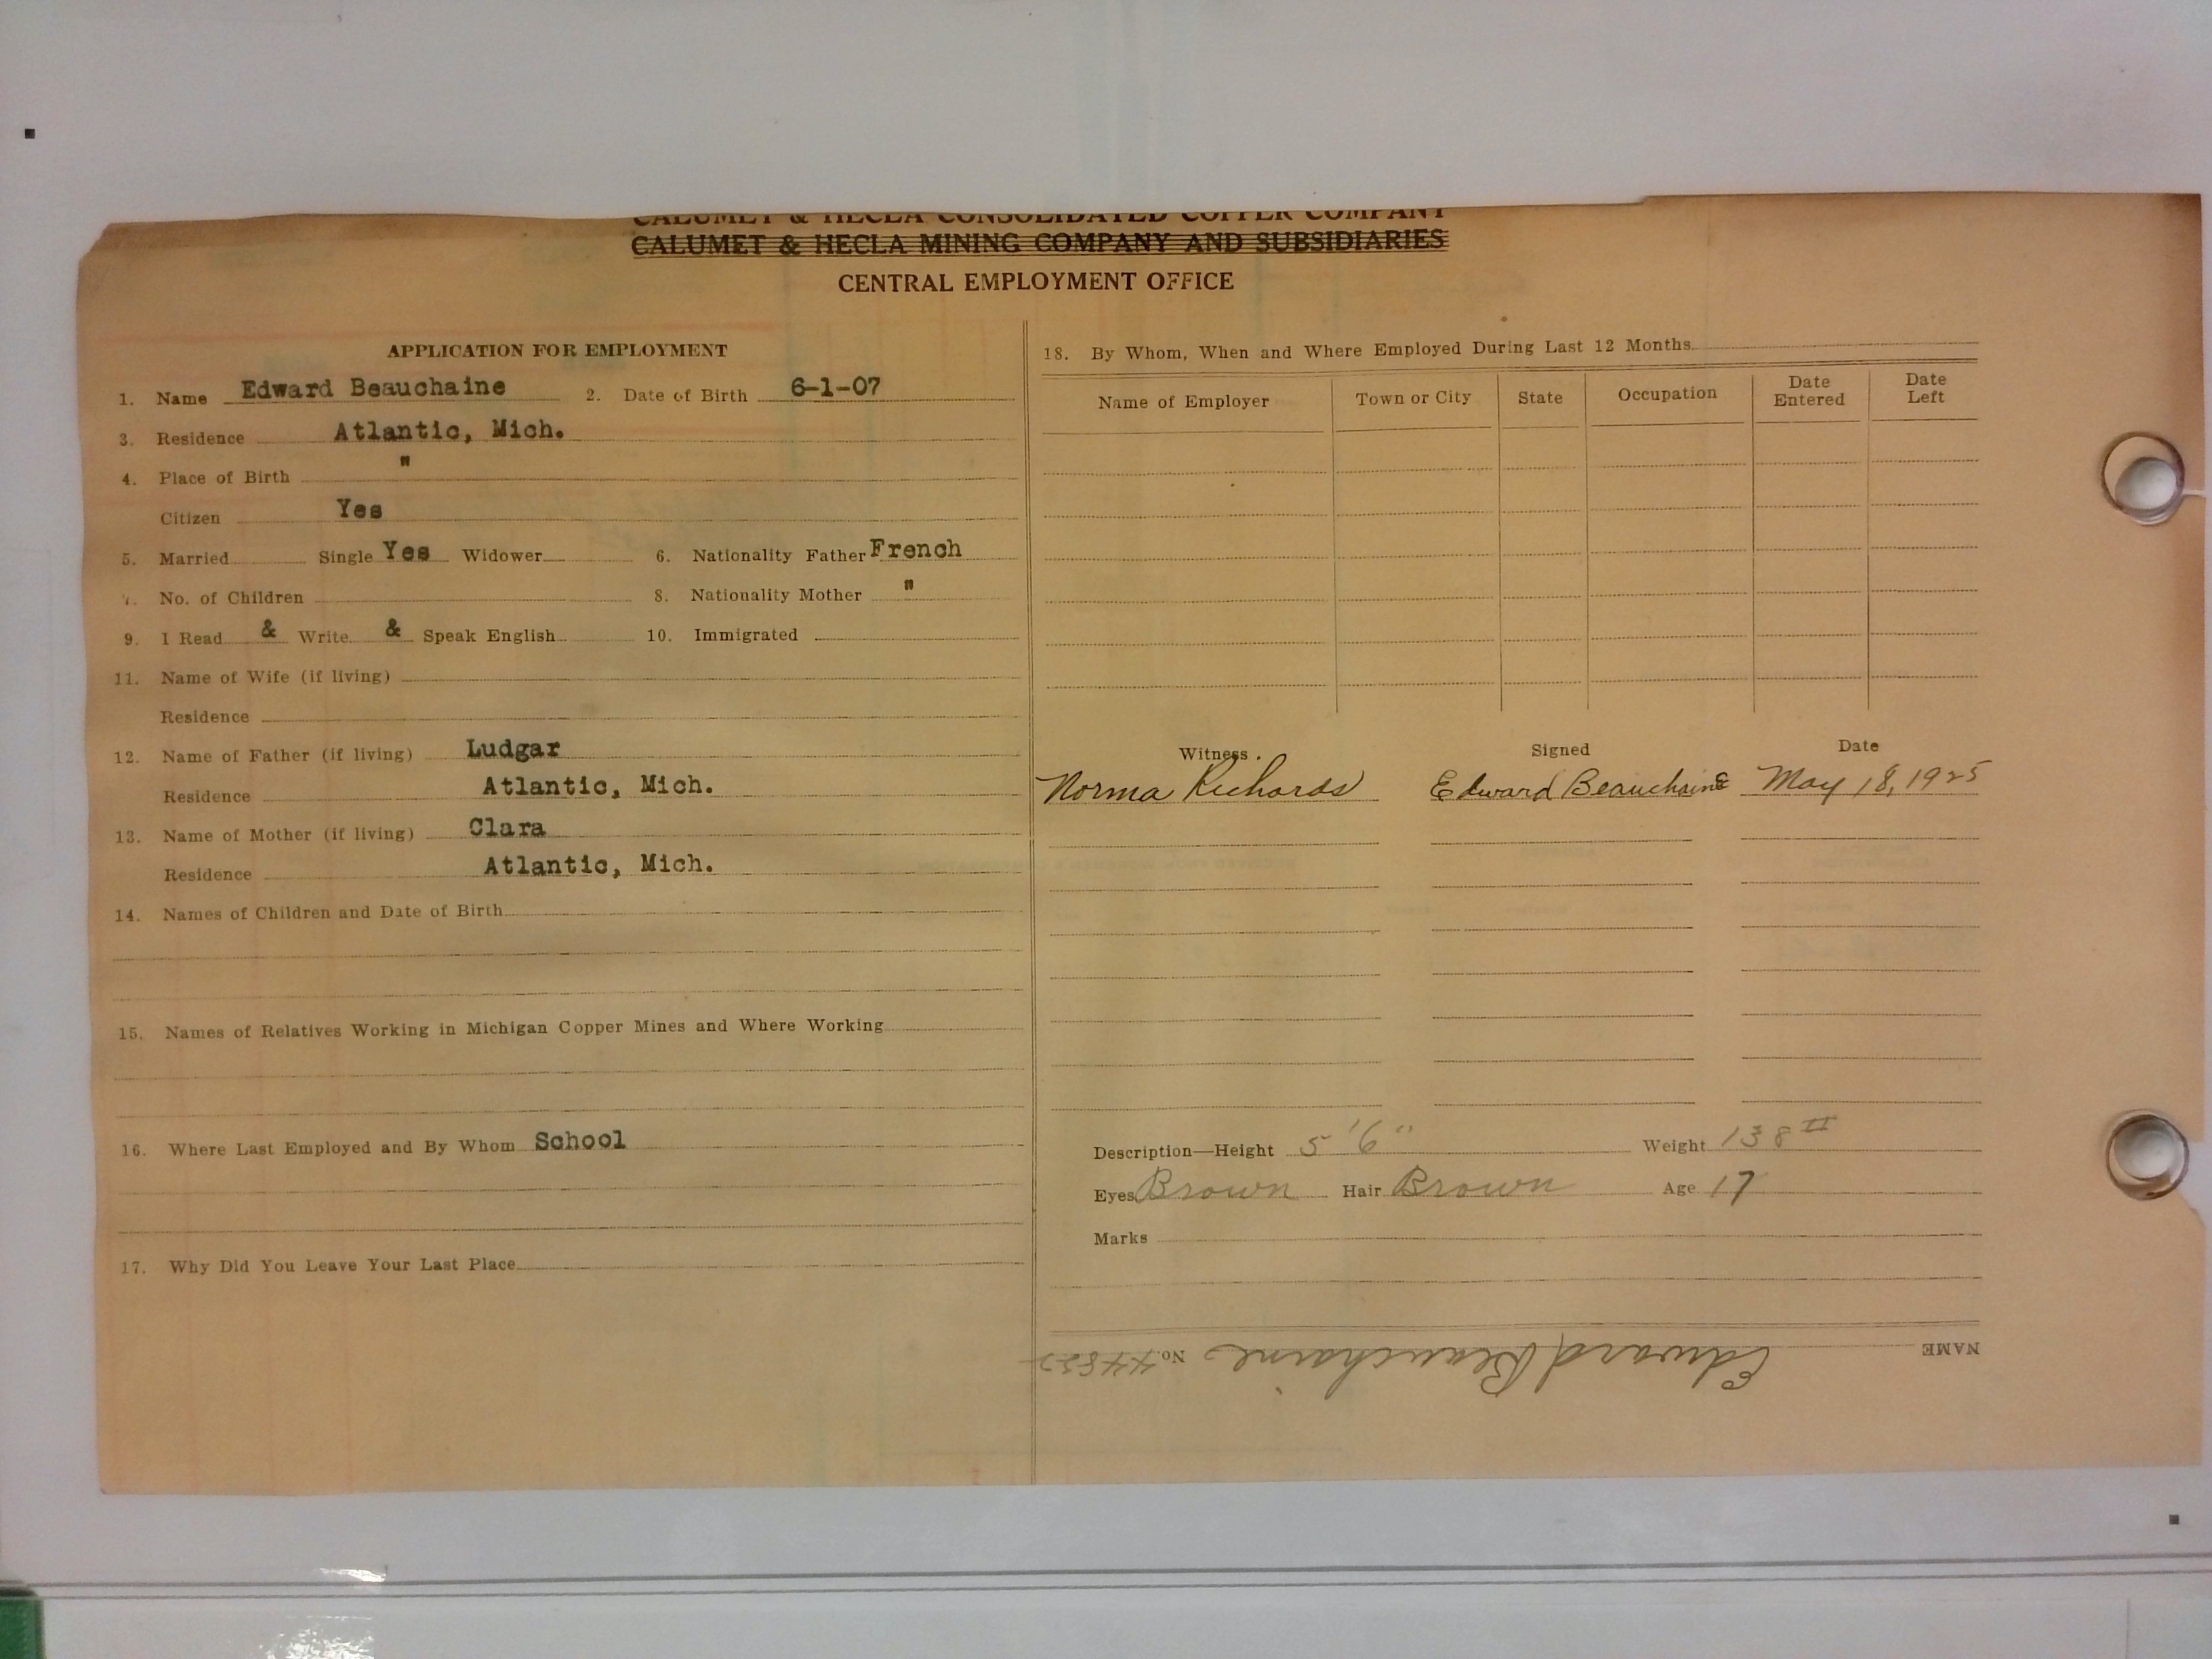 CALUMET & HECLA CONSOLIDATED COPPER COMPANY
CALUMET & HECLA MINING COMPANY AND SUBSIDIARIES
CENTRAL EMPLOYMENT OFFICE
APPLICATION FOR EMPLOYMENT
1. Name Edward Beauchaine 2. Date of Birth 6-1-07
3. Residence Atlantic, Mich.
4. Place of Birth "
Citizen Yes
5. Married Single Yes Widower 6. Nationality Father French
7. No. of Children 8. Nationality Mother "
9. I Read & Write & Speak English 10. Immigrated
11. Name of Wife (if living)
Residence
12. Name of Father (if living) Ludgar
Residence Atlantic, Mich.
13. Name of Mother (if living) Clara
Residence Atlantic, Mich.
14. Names of Children and Date of Birth
15. Names of Relatives Working in Michigan Copper Mines and Where Working
16. Where Last Employed and By Whom School
17. Why Did You Leave Your Last Place
18. By Whom, When and Where Employed During Last 12 Months
Name of Employer Town or City State Occupation Date Entered Date Left
Witness. Signed Date
Norma Richards Edward Beauchaine May 18, 1925
Description—Height 5'6" Weight 138
Eyes Brown Hair Brown Age 17
Marks
NAME Edward Beauchaine No.